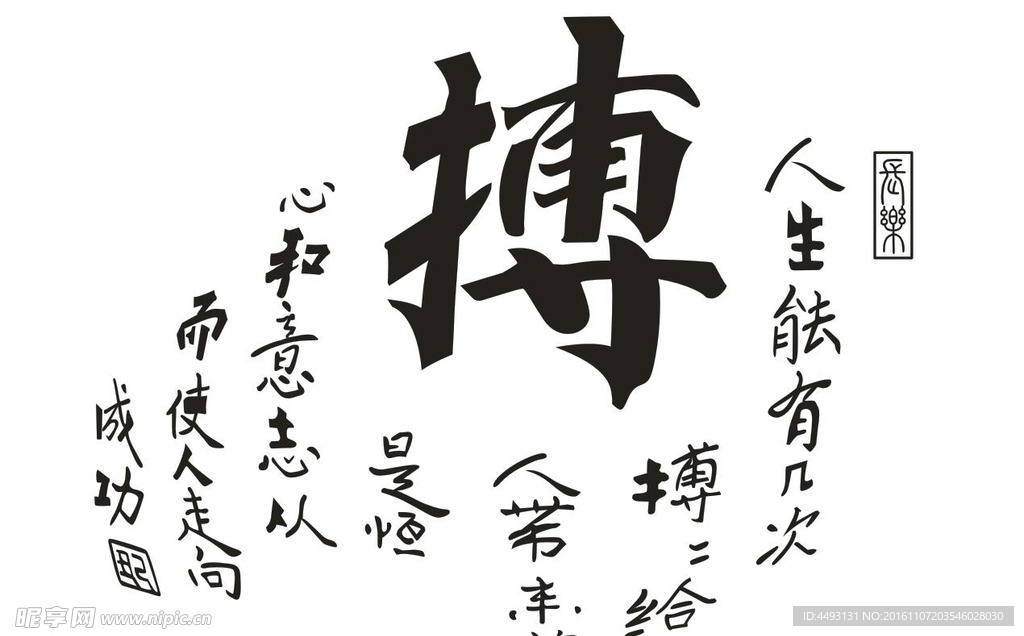 搏
長樂
人生能有几次
搏〻给
人带来
是恒
心和意志从
而使人走向
成功
昵享网 www.nipic.cn
ID:4493131 NO:20161107203546028030